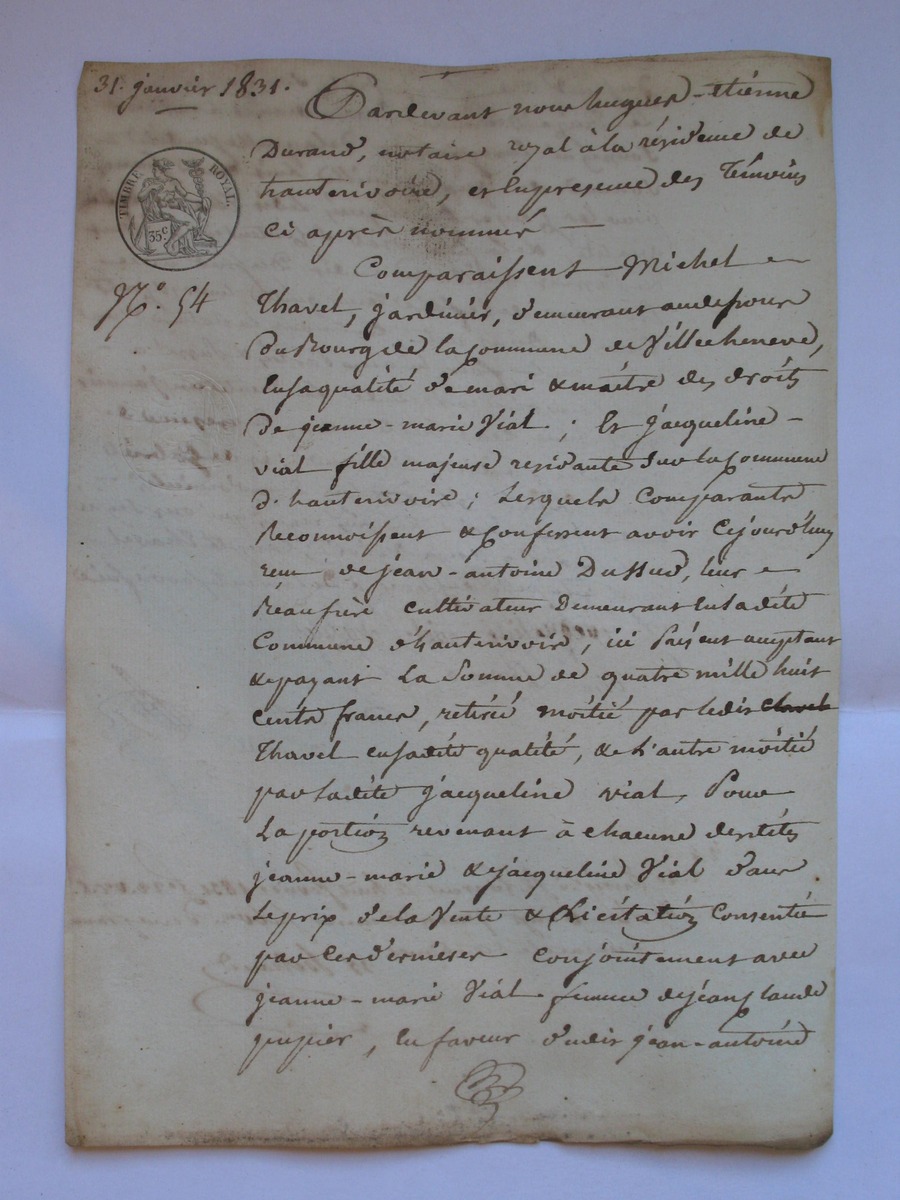 31. janvier 1831.
Pardevant nous hugues-étienne
Durand, notaire royal à la résidence de
hauterivoire, et en presence des Témoins
ci après nommés —
TIMBRE ROYAL.
35 C.
N.º 54
Comparaissent Michel
Thavel, jardinier, demeurant au dessous
du Bourg de la commune de Villecheneve,
en sa qualité de mari & maître des droits
de jeanne-marie Vial ; Et jacqueline
vial fille majeure residante sur la commune
d'hauterivoire ; Lesquels Comparants
Reconnoissent & confessent avoir cejourd'huy
recu de jean-antoine Dussud, leur
Beaufrère cultivateur Demeurant en sadite
Commune d'hauterivoir, ici Présent acceptant
& payant La Somme de quatre mille huit
cents francs, retirée moitié par ledit
Thavel en sadite qualité, & l'autre moitié
par ladite jacqueline vial, Pour
La portion revenant à chacune desdites
jeanne-marie & jacqueline Vial dans
le prix de la Vente & Licitation Consentie
par ces dernieres conjointement avec
jeanne-marie Vial femme de jean claude
pupier, en faveur dudit jean-antoine